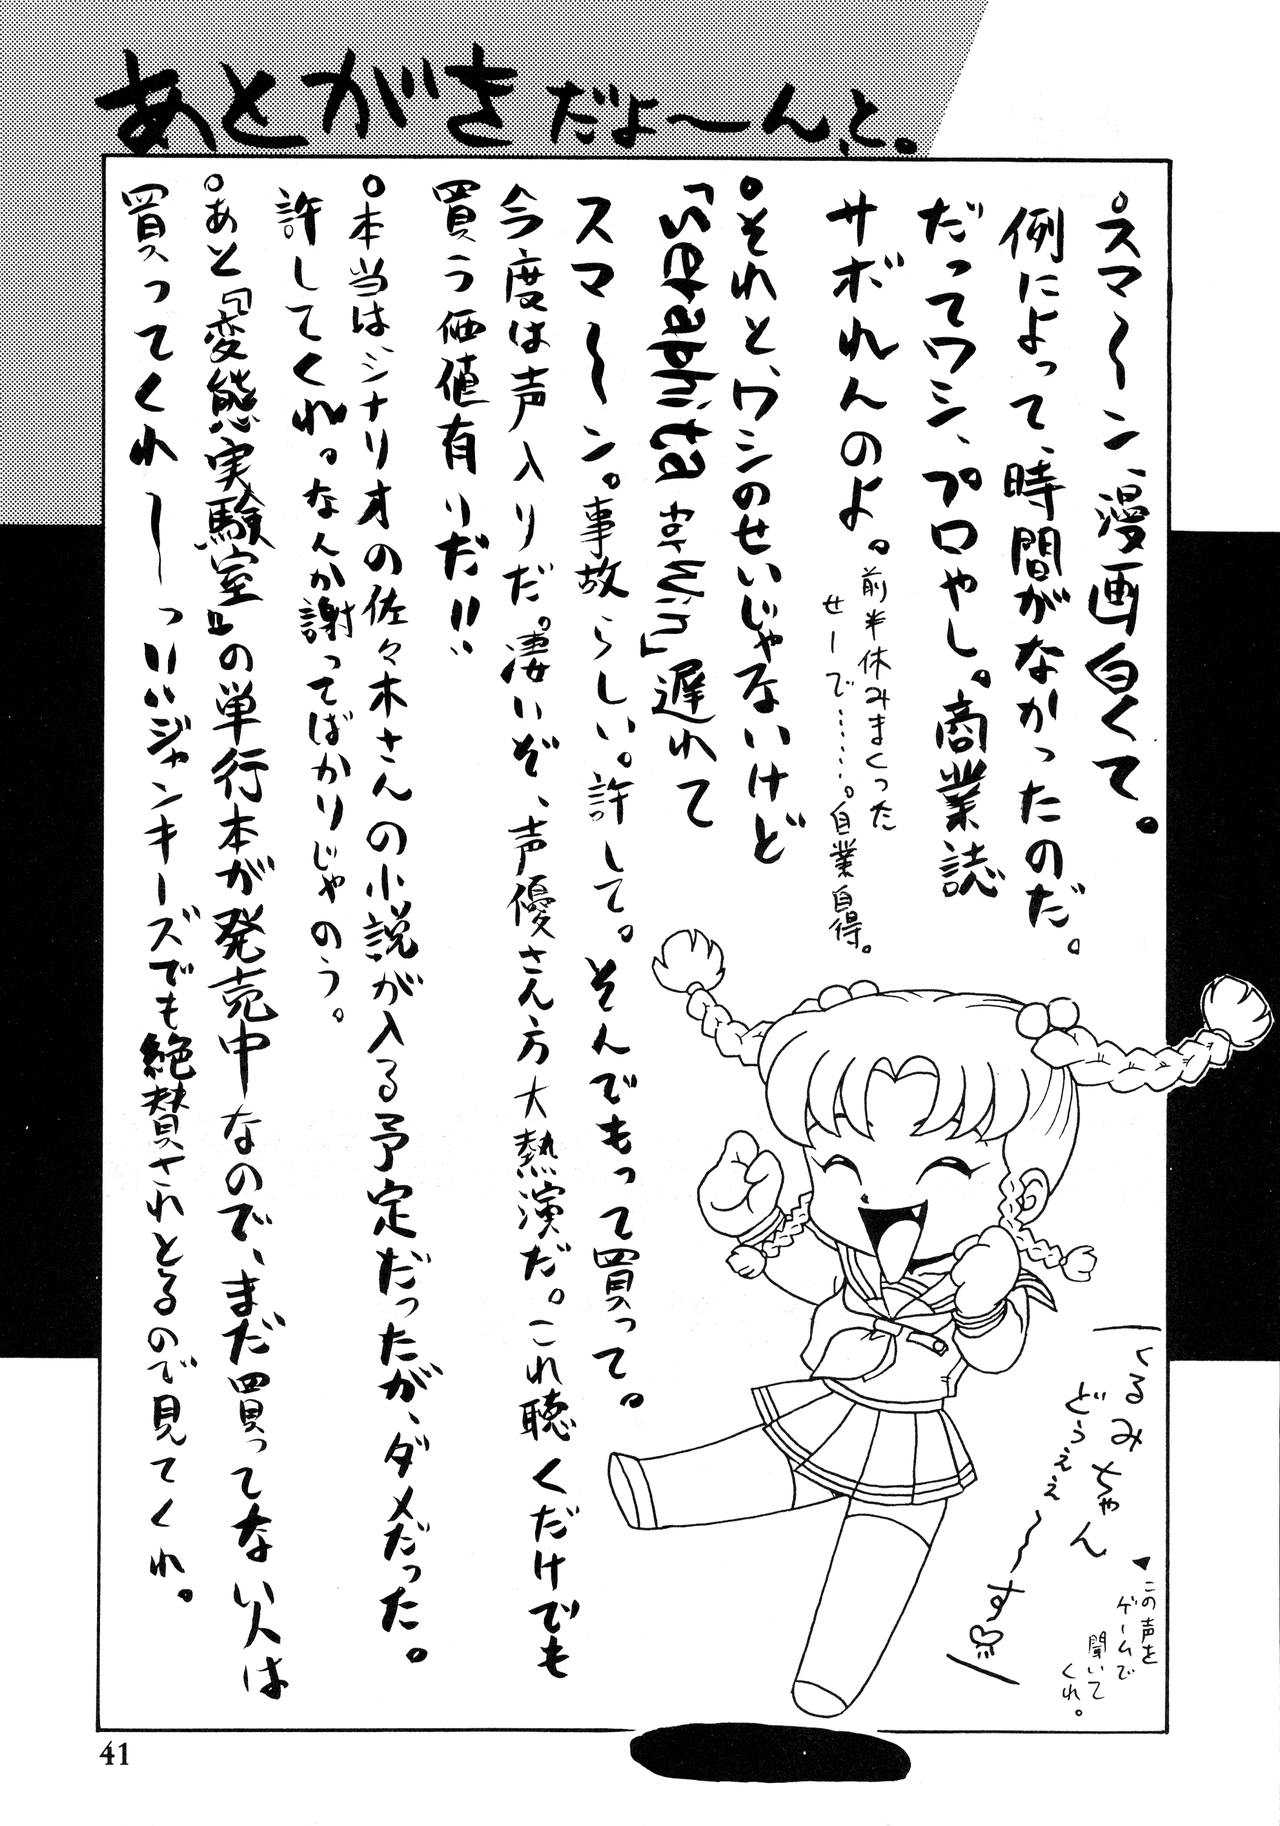 あとがきだよ〜ん、と。
○スマ〜ン、漫画白くて。
例によって、時間がなかったのだ。
だってワシ、プロやし。商業誌
サボれんのよ。前半休みまくった
せーで……。自業自得。
○それと、ワシのせいじゃないけど
「Seraphita for win」遅れて
スマ〜ン。事故らしい。許して。そんでもって買って。
今度は声入りだ。凄いぞ、声優さん方大熱演だ。これ聴くだけでも
買う価値有りだ!!
○本当はシナリオの佐々木さんの小説が入る予定だったが、ダメだった。
許してくれ。なんか謝ってばかりじゃのう。
○あと『変態実験室』の単行本が発売中なので、まだ買ってない人は
買ってくれ〜〜っ!!ジャンキーズでも絶賛されとるので見てくれ。
くるみちゃん
どぅぇぇ〜〜す♡
▼この声を
ゲームで
聞いて
くれ。
41